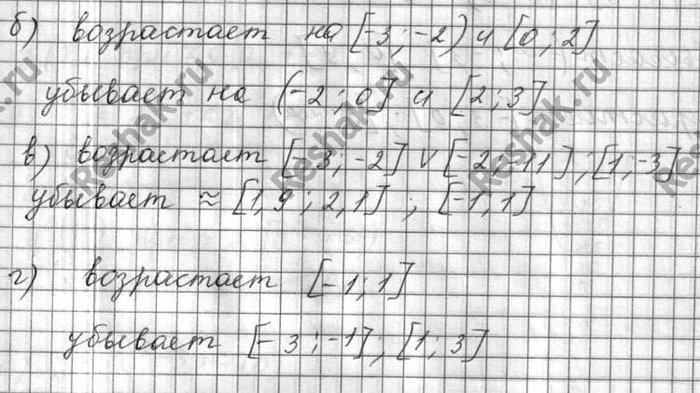 б) возрастает на [-3; -2) и [0; 2]
убывает на (-2; 0] и [2; 3]
в) возрастает [-3; -2] v [-2; -1,1]; [1; -3]
убывает ≈ [1,9; 2,1]; [-1, 1]
г) возрастает [-1; 1]
убывает [-3; -1]; [1; 3]
Reshak.ru
Reshak.ru
Reshak.ru